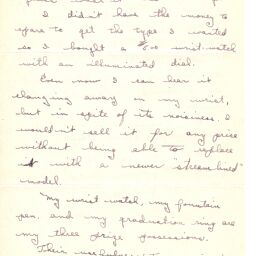 I didn't have the money to
spare to get the type I wanted
so I bought a $8.00 wrist-watch
with an illuminated dial.
Even now I can hear it
clanging away on my wrist,
but in spite of its noisiness. I
wouldn't sell it for any price
without being able to replace
it with a newer "stream-lined"
model.
My wrist watch, my fountain
pen, and my graduation ring are
my three prize possessions.
Their